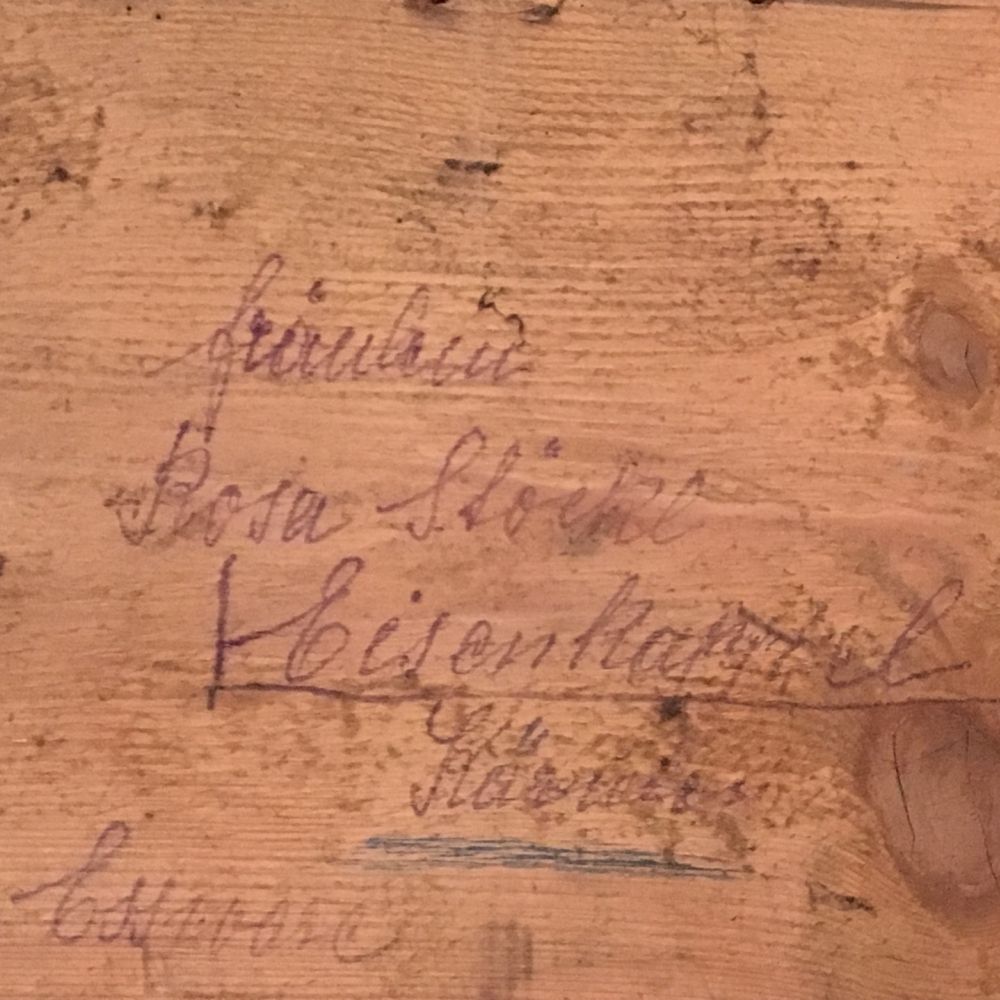 Fräulein
Rosa Stöckl
Eisenkappel
Kärnten